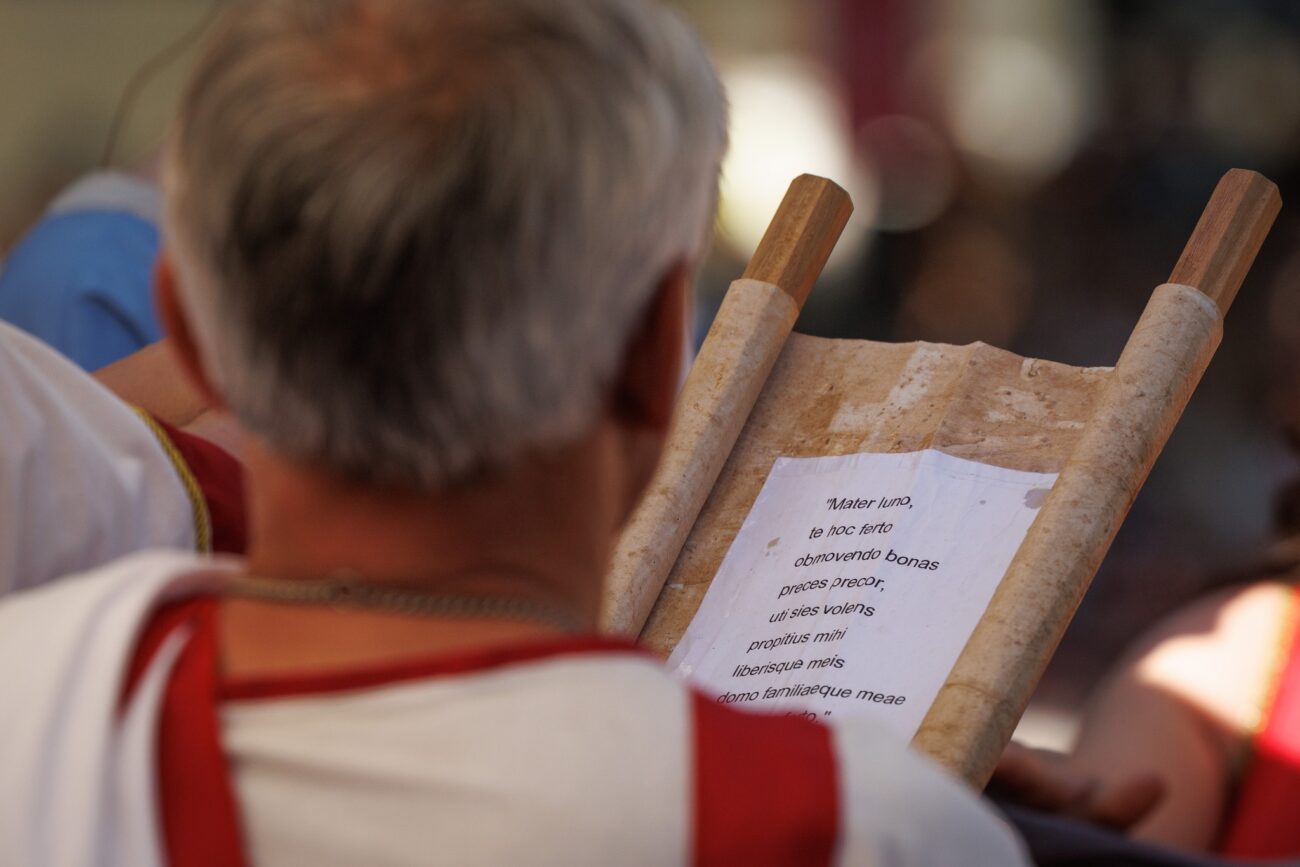 "Mater Iuno,
te hoc ferto
obmovendo bonas
preces precor,
uti sies volens
propitius mihi
liberisque meis
domo familiaeque meae